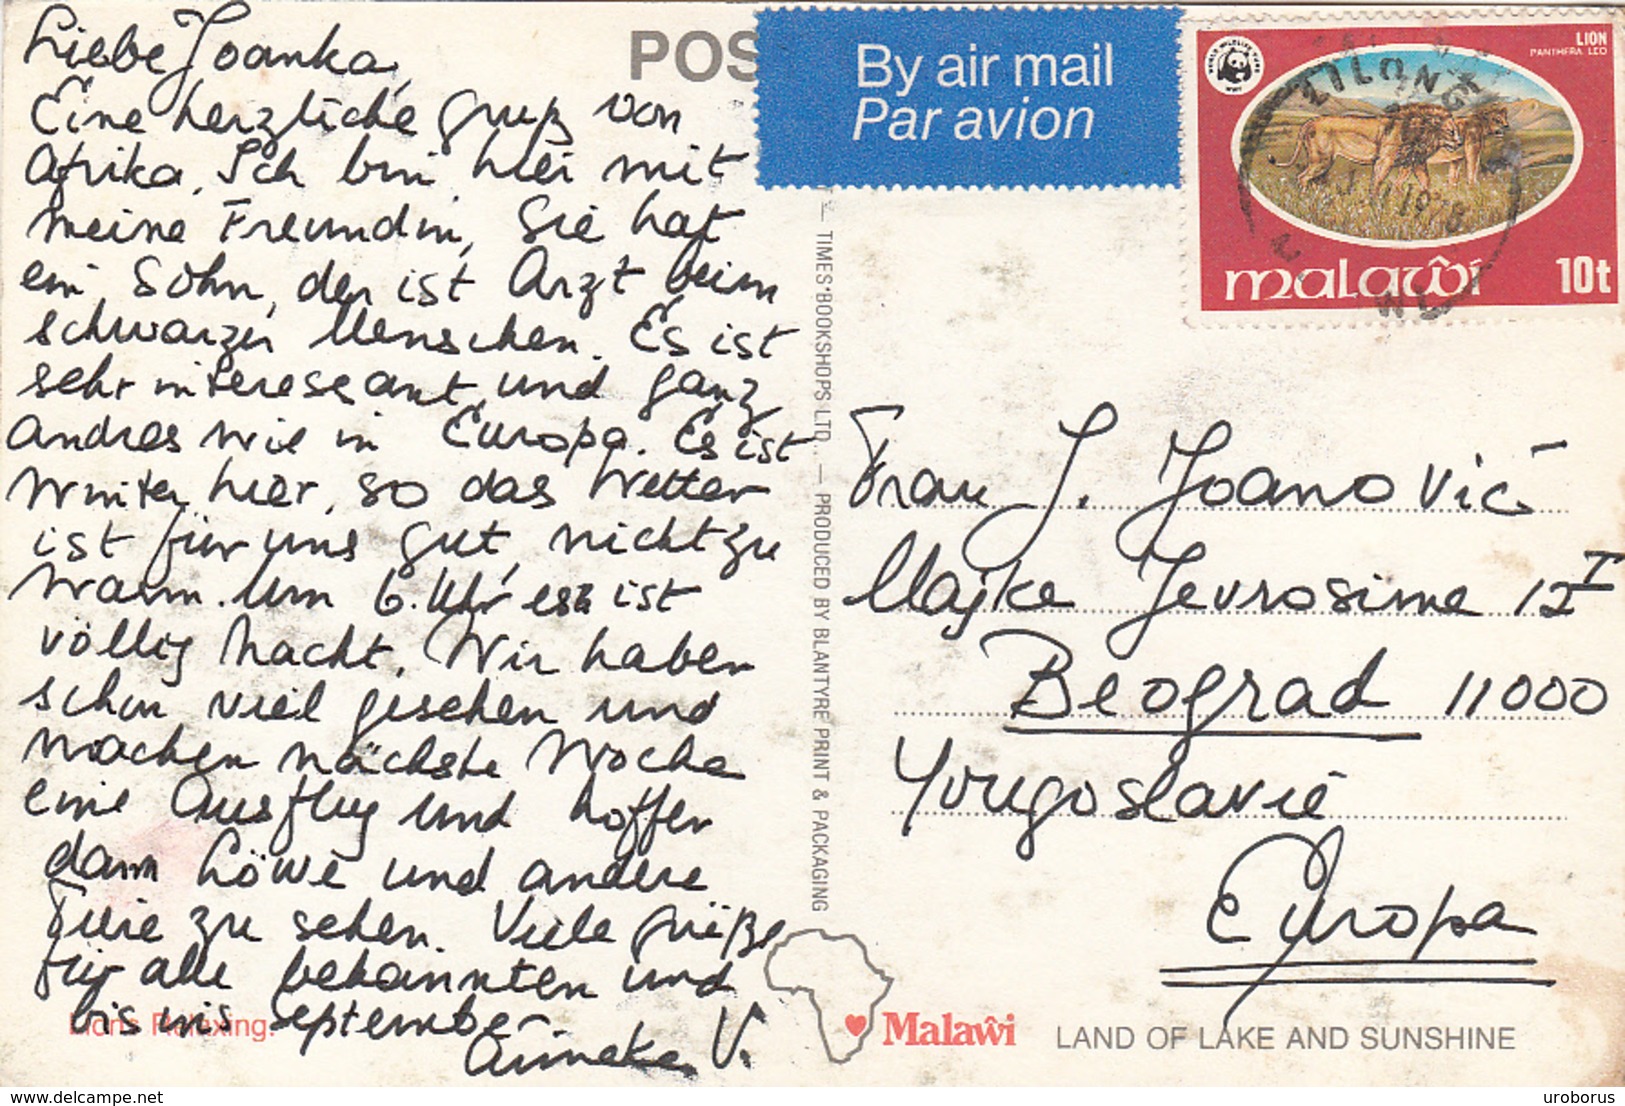 Liebe Joanka,
Eine herzliche gruß von
Afrika. Ich bin hier mit
meine Freundin, Sie hat
ein Sohn, der ist Arzt beim
schwarzen Menschen. Es ist
sehr interessant und ganz
andres wie in Europa. Es ist
Winter hier, so das Wetter
ist für uns gut, nicht zu
warm. Um 6. Uhr ist
völlig Nacht. Wir haben
schon viel gesehen und
machen nächste Woche
eine Ausflug und hoffen
dann Löwe und andere
Tiere zu sehen. Viele grüße
für alle bekannten und
bis ins September.
Anneke V.
Lions Relaxing.
POS
By air mail
Par avion
LION
PANTHERA LEO
WORLD WILDLIFE FUND
WWF
LILONGWE
1978
malaŵi 10t
TIMES BOOKSHOPS LTD. — PRODUCED BY BLANTYRE PRINT & PACKAGING
Frau J. Joanović
Majke Jevrosime 12 I
Beograd 11000
Yougoslavië
Europa
Malaŵi LAND OF LAKE AND SUNSHINE
https://www.delcampe.net
uroborus